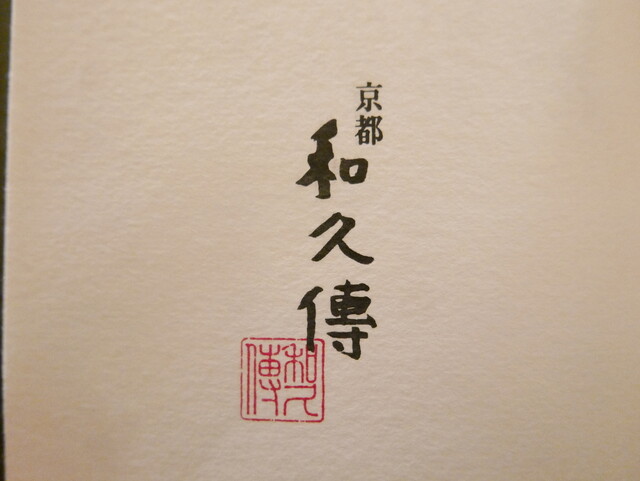 京都
和久傳
和久
傳